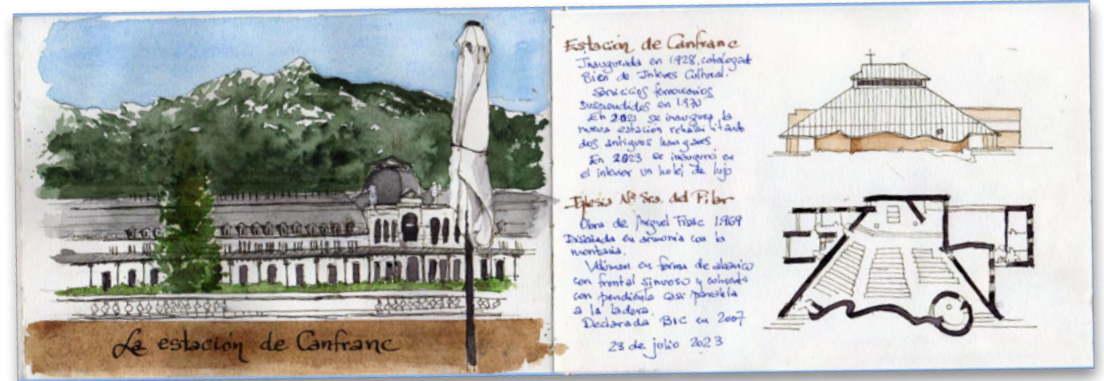 La estación de Canfranc
Estación de Canfranc
Inaugurada en 1928, catalogada
Bien de Interes Cultural.
Servicios ferroviarios
suspendidos en 1970
En 2021 se inaugura la
nueva estación rehabilitando
dos antiguos hangares
En 2023 se inauguró en
el interior un hotel de lujo
Iglesia Nª Sra. del Pilar
Obra de Miguel Fisac 1969
Diseñada en armonía con la
montaña.
Volumen en forma de abanico
con frontal sinuoso y cubierta
con pendiente casi paralela
a la ladera.
Declarada BIC en 2007
23 de julio 2023